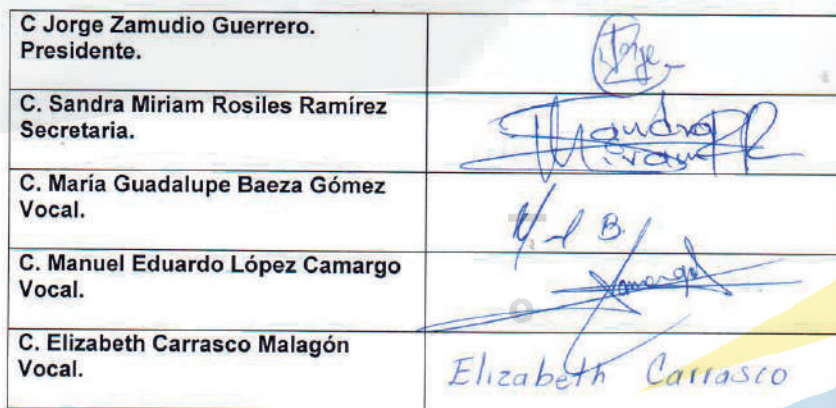 C Jorge Zamudio Guerrero.
Presidente.
Jorge
C. Sandra Miriam Rosiles Ramírez
Secretaria.
Sandra
Miriam
C. María Guadalupe Baeza Gómez
Vocal.
B.
C. Manuel Eduardo López Camargo
Vocal.
Camargo
C. Elizabeth Carrasco Malagón
Vocal.
Elizabeth Carrasco